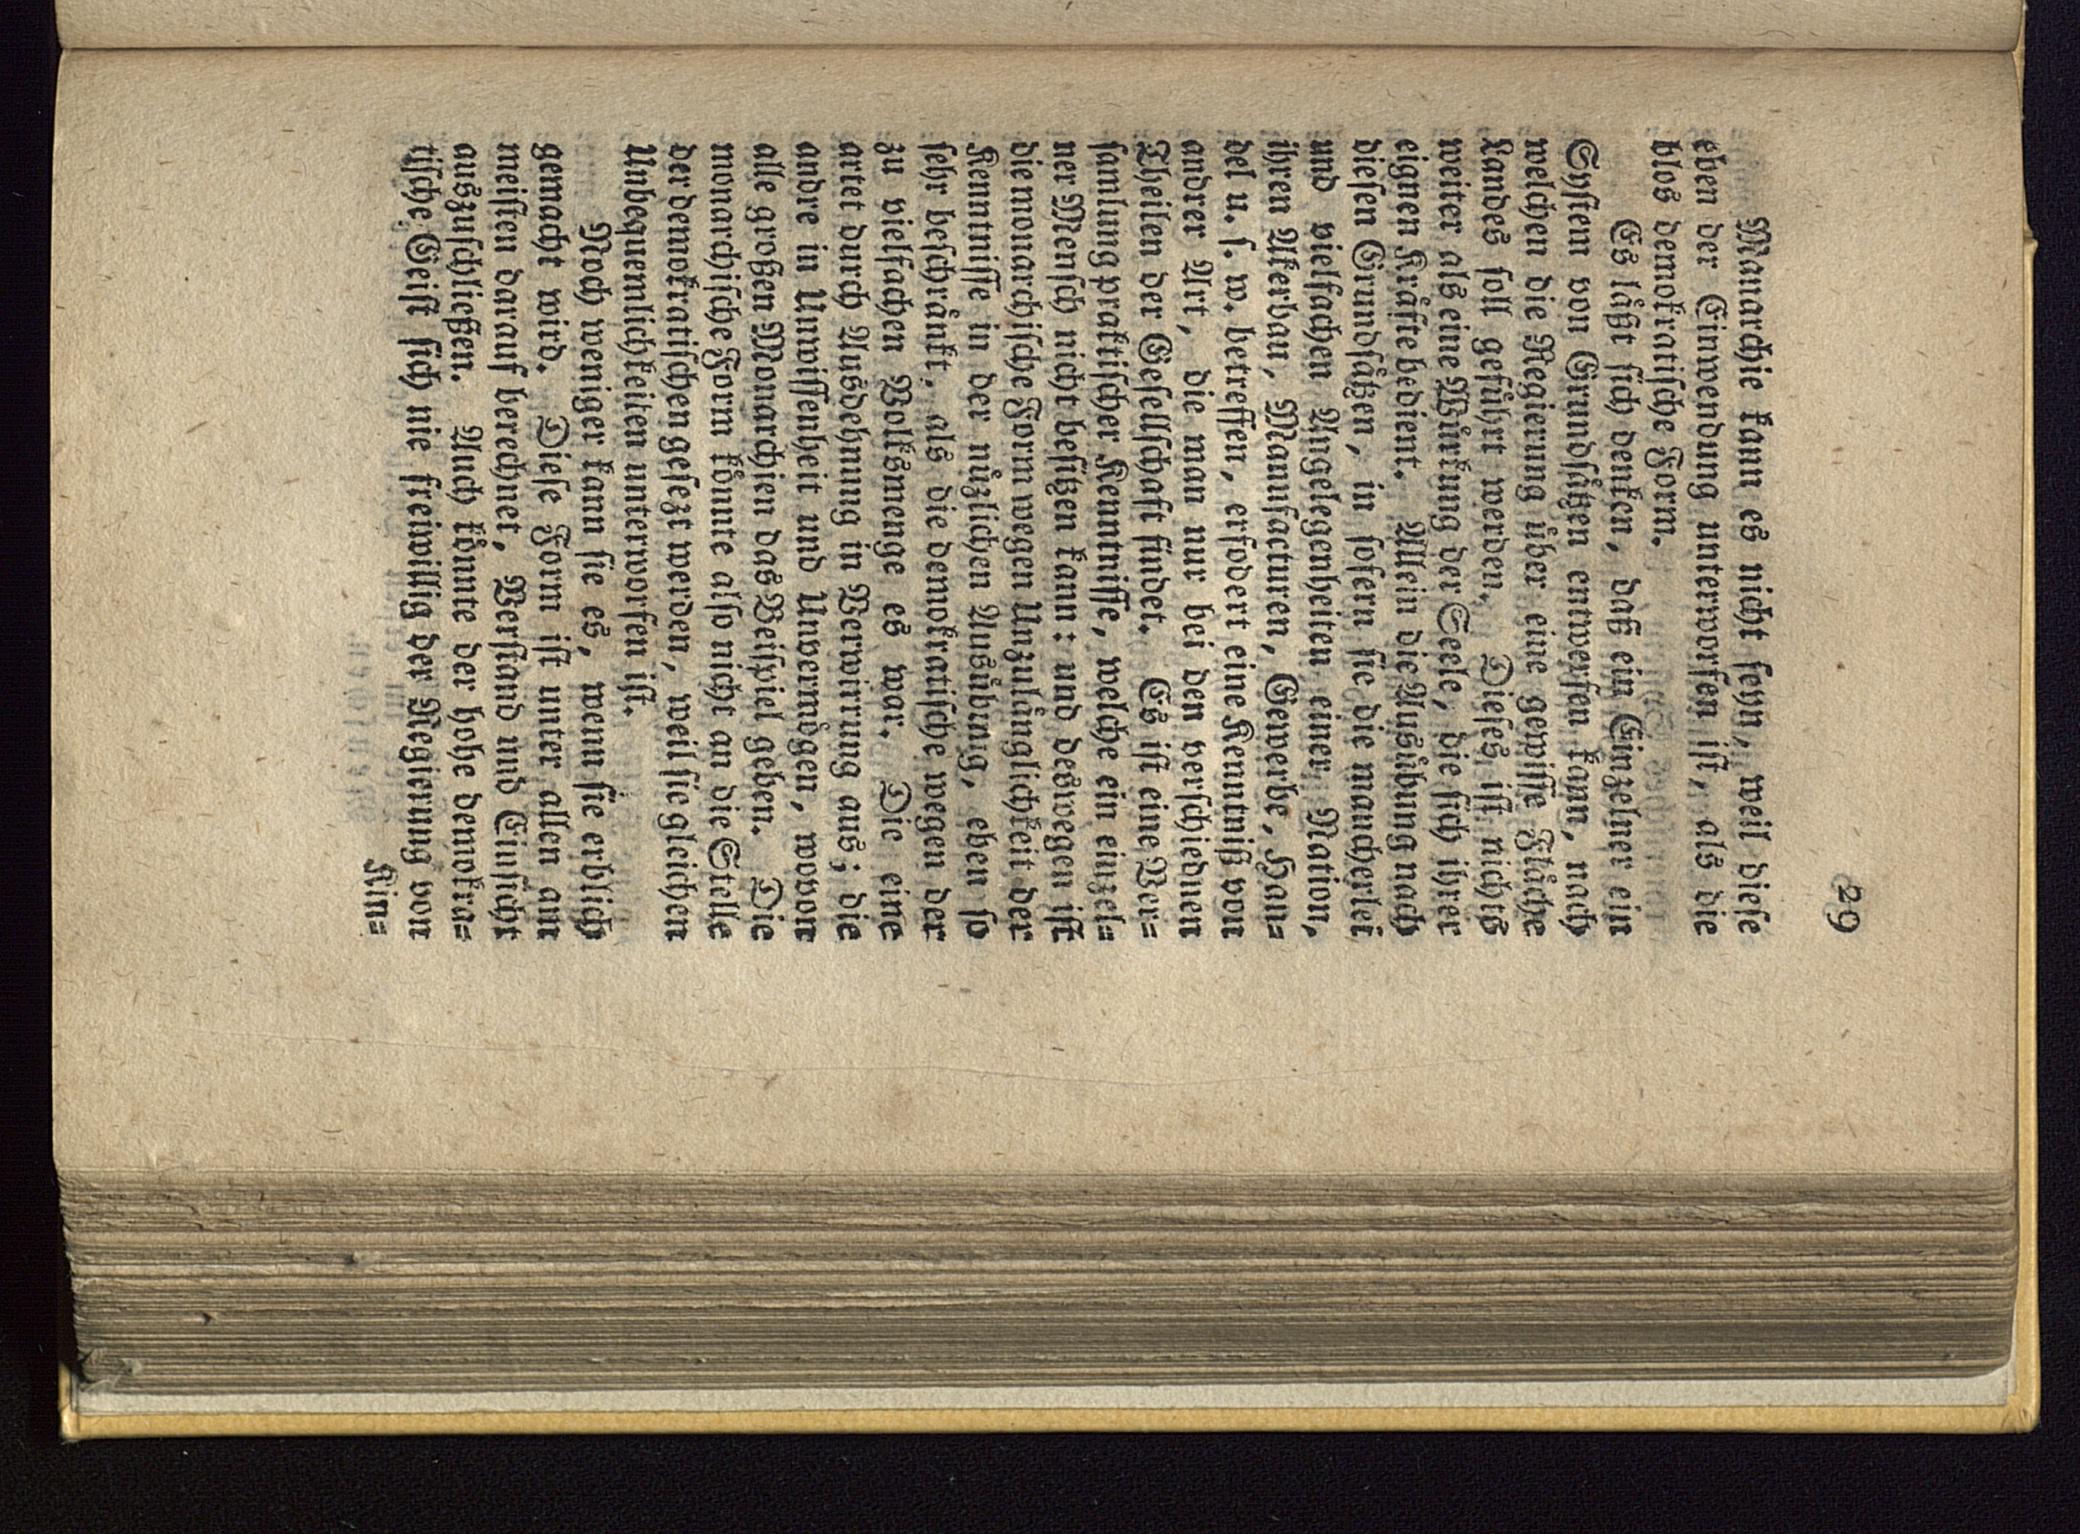 29
Monarchie kann es nicht seyn, weil diese
eben der Einwendung unterworfen ist, als die
blos demokratische Form.
Es läßt sich denken, daß ein Einzelner ein
System von Grundsätzen entwerfen kann, nach
welchen die Regierung über eine gewisse Fläche
Landes soll geführt werden. Dieses ist nichts
weiter als eine Würkung der Seele, die sich ihrer
eignen Kräfte bedient. Allein die Ausübung nach
diesen Grundsätzen, in sofern sie die mancherlei
und vielfachen Angelegenheiten einer Nation,
ihren Akerbau, Manufacturen, Gewerbe, Han=
del u. s. w. betreffen, erfodert eine Kenntniß von
andrer Art, die man nur bei den verschiednen
Theilen der Gesellschaft findet. Es ist eine Ver=
samlung praktischer Kenntnisse, welche ein einzel=
ner Mensch nicht besitzen kann: und deswegen ist
die monarchische Form wegen Unzulänglichkeit der
Kenntnisse in der nüzlichen Ausübung, eben so
sehr beschränkt, als die demokratische wegen der
zu vielfachen Volksmenge es war. Die eine
artet durch Ausdehnung in Verwirrung aus; die
andre in Unwissenheit und Unvermögen, wovon
alle großen Monarchien das Beispiel geben. Die
monarchische Form könnte also nicht an die Stelle
der demokratischen gesezt werden, weil sie gleichen
Unbequemlichkeiten unterworfen ist.
Noch weniger kann sie es, wenn sie erblich
gemacht wird. Diese Form ist unter allen am
meisten darauf berechnet, Verstand und Einsicht
auszuschließen. Auch könnte der hohe demokra=
tische Geist sich nie freiwillig der Regierung von
Kin=